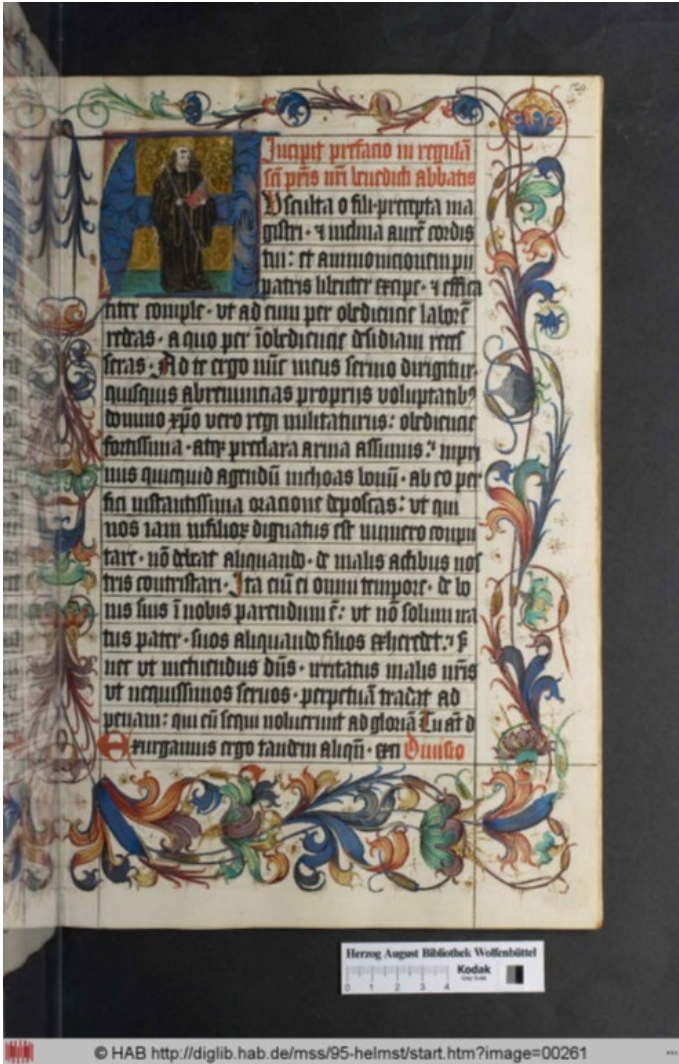 Incipit prefacio in regulā
sci pr̄is nr̄i benedicti abbatis
Usculta o fili precepta ma
gistri · ⁊ inclina aurē cordis
tui : et ammonicionem pii
patris libenter excipe · ⁊ effica
citer comple · vt ad eum per obediencie laborē
redeas · a quo per īobediencie desidiam reces
seras · Ad te ergo nūc meus sermo dirigitur
quisquis abrenuncias proprijs voluptatibꝰ
domino xp̄o vero regi militaturus : obediencie
fortissima · atqꝫ preclara arma assumis : inpri
mis quicquid agendū inchoas bonū · ab eo per
fici instantissima oracione deposcas : vt qui
nos iam in filioꝝ dignatus est numero conpu
tare · nō debeat aliquando · de malis actibus nos
tris contristari · Ita eni ei omni tempore · de bo
nis suis ī nobis parendum ē : vt nō solum ira
tus pater · suos aliquando filios exheredet : s̄
nec vt metuendus dn̄s · irritatus malis nr̄is
vt nequissimos seruos · perpetuā tradat ad
penam : qui eū sequi noluerunt ad gloriā Tu aūt d
Exurgamus ergo tandem aliqn̄ · exci Diuisio
Herzog August Bibliothek Wolfenbüttel
Kodak
0 1 2 3 4
© HAB http://diglib.hab.de/mss/95-helmst/start.htm?image=00261